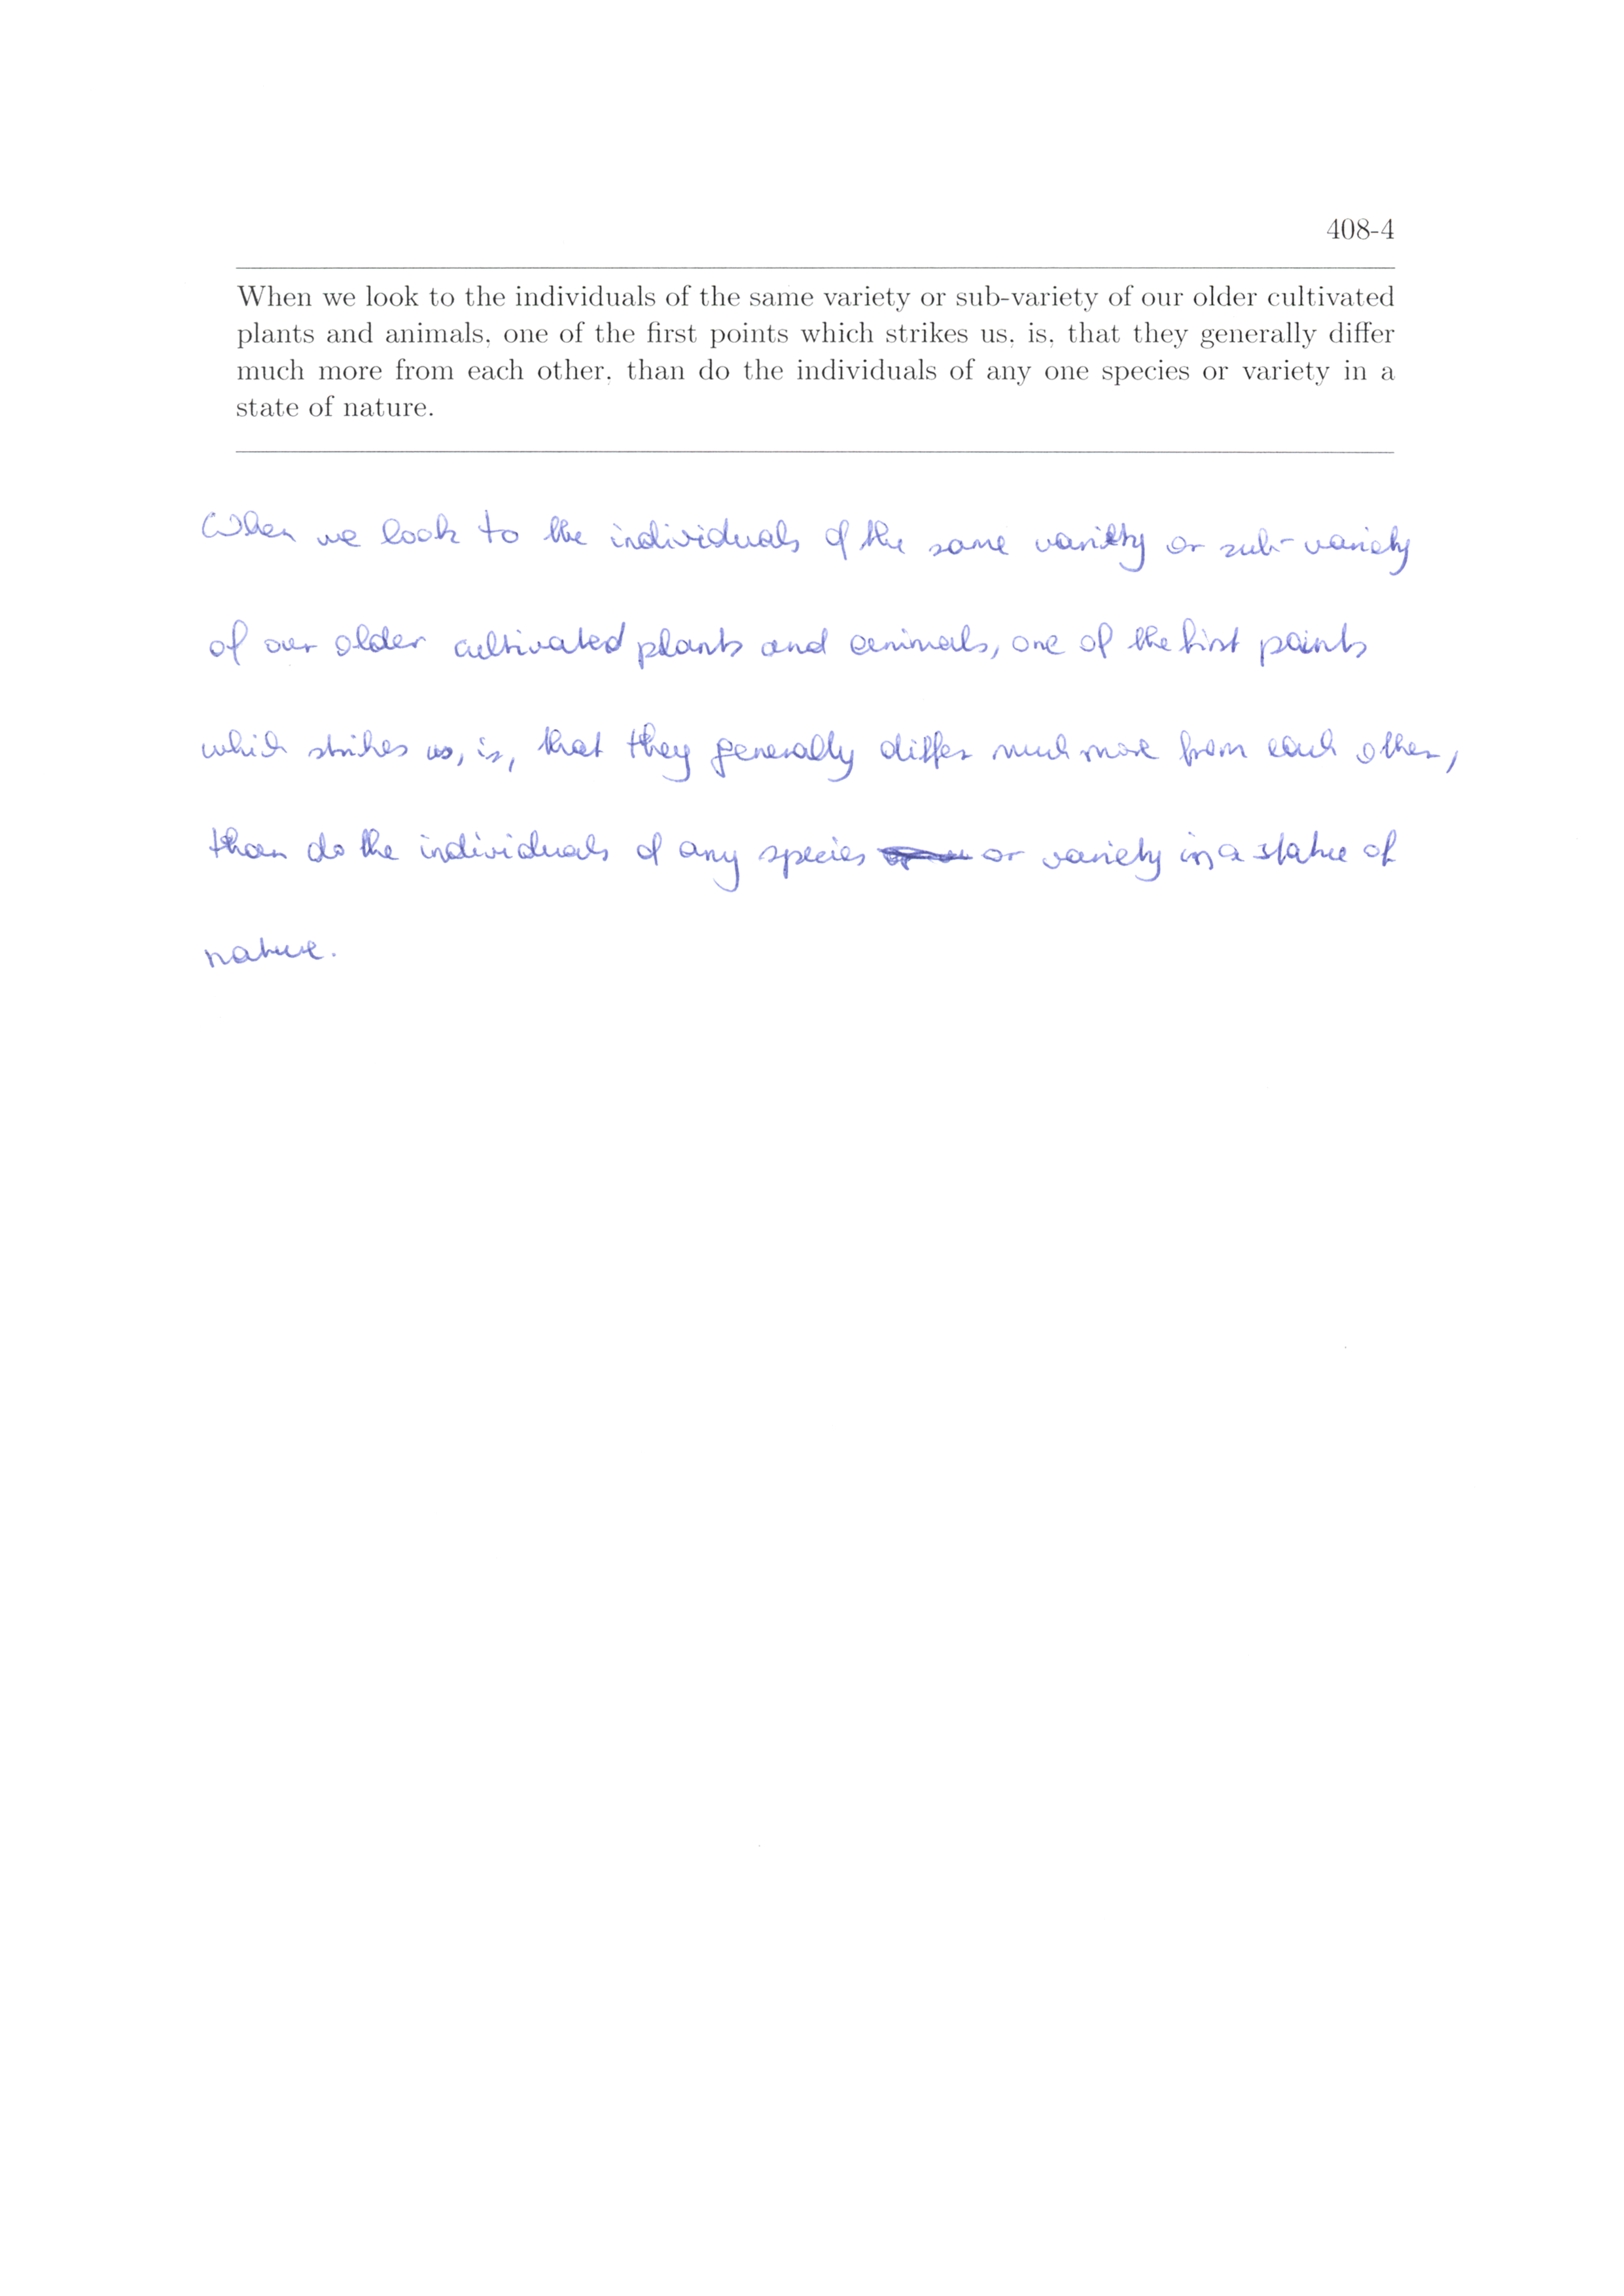 408-4
When we look to the individuals of the same variety or sub-variety of our older cultivated
plants and animals, one of the first points which strikes us, is, that they generally differ
much more from each other, than do the individuals of any one species or variety in a
state of nature.
When we look to the individuals of the same variety or sub-variety
of our older cultivated plants and animals, one of the first points
which strikes us, is, that they generally differ much more from each other,
than do the individuals of any species or variety in a statue of
nature.